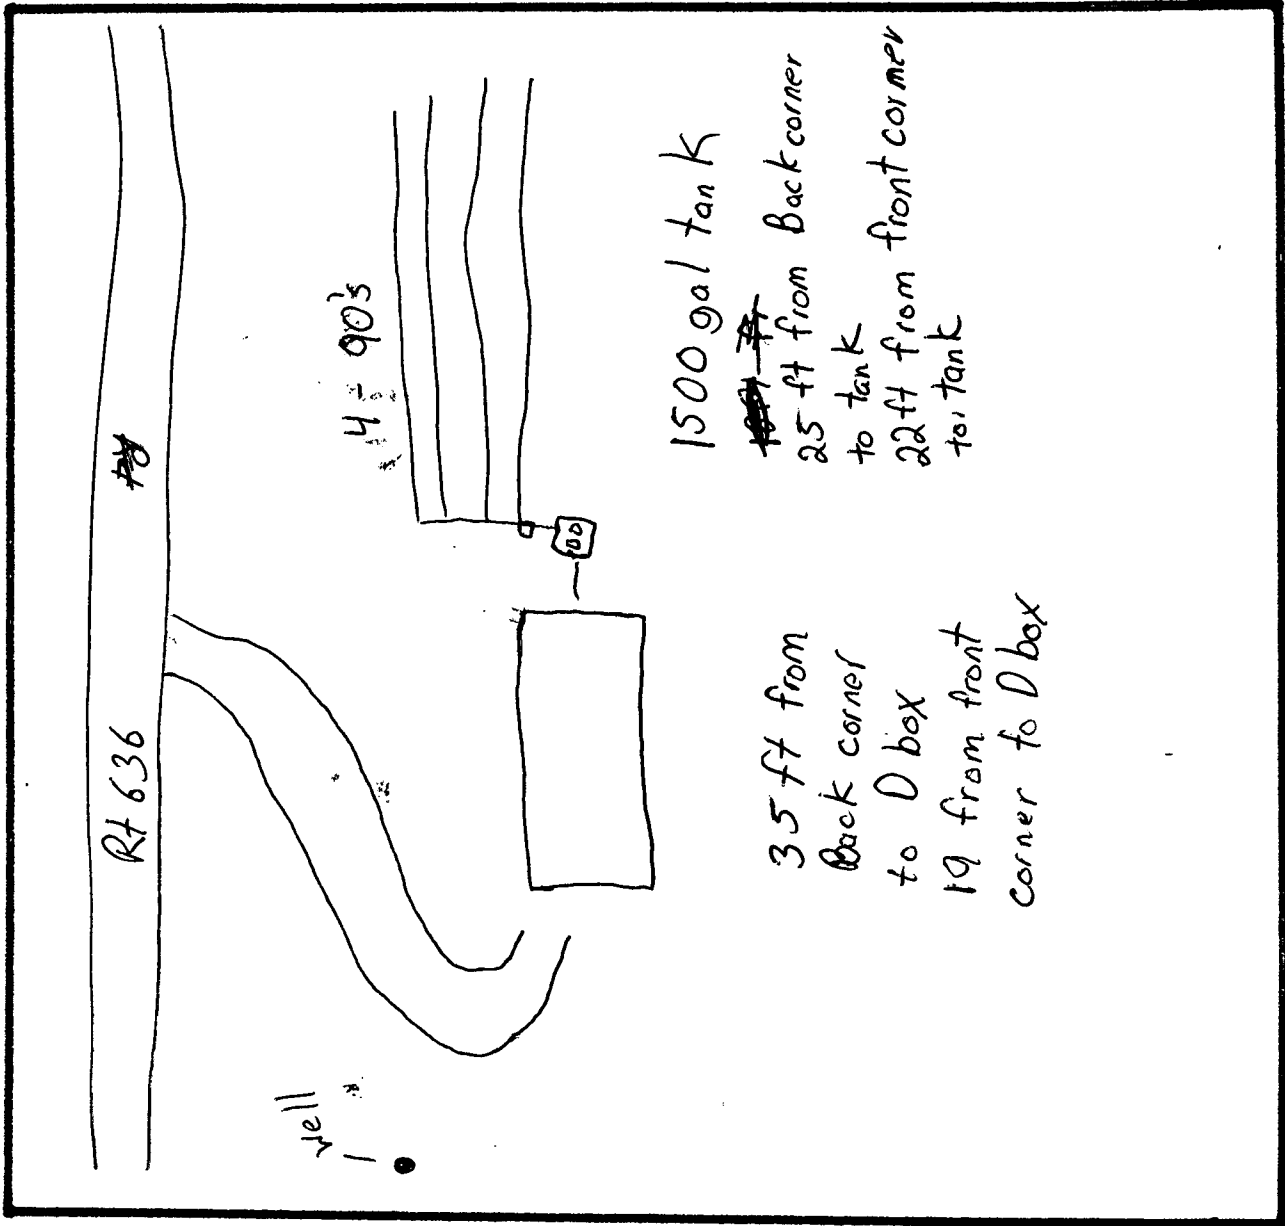 Rt 636
well
4 - 90's
1500 gal tank
25 ft from Back corner
to tank
22 ft from front corner
to tank
35 ft from
Back corner
to D box
19 from front
corner to D box